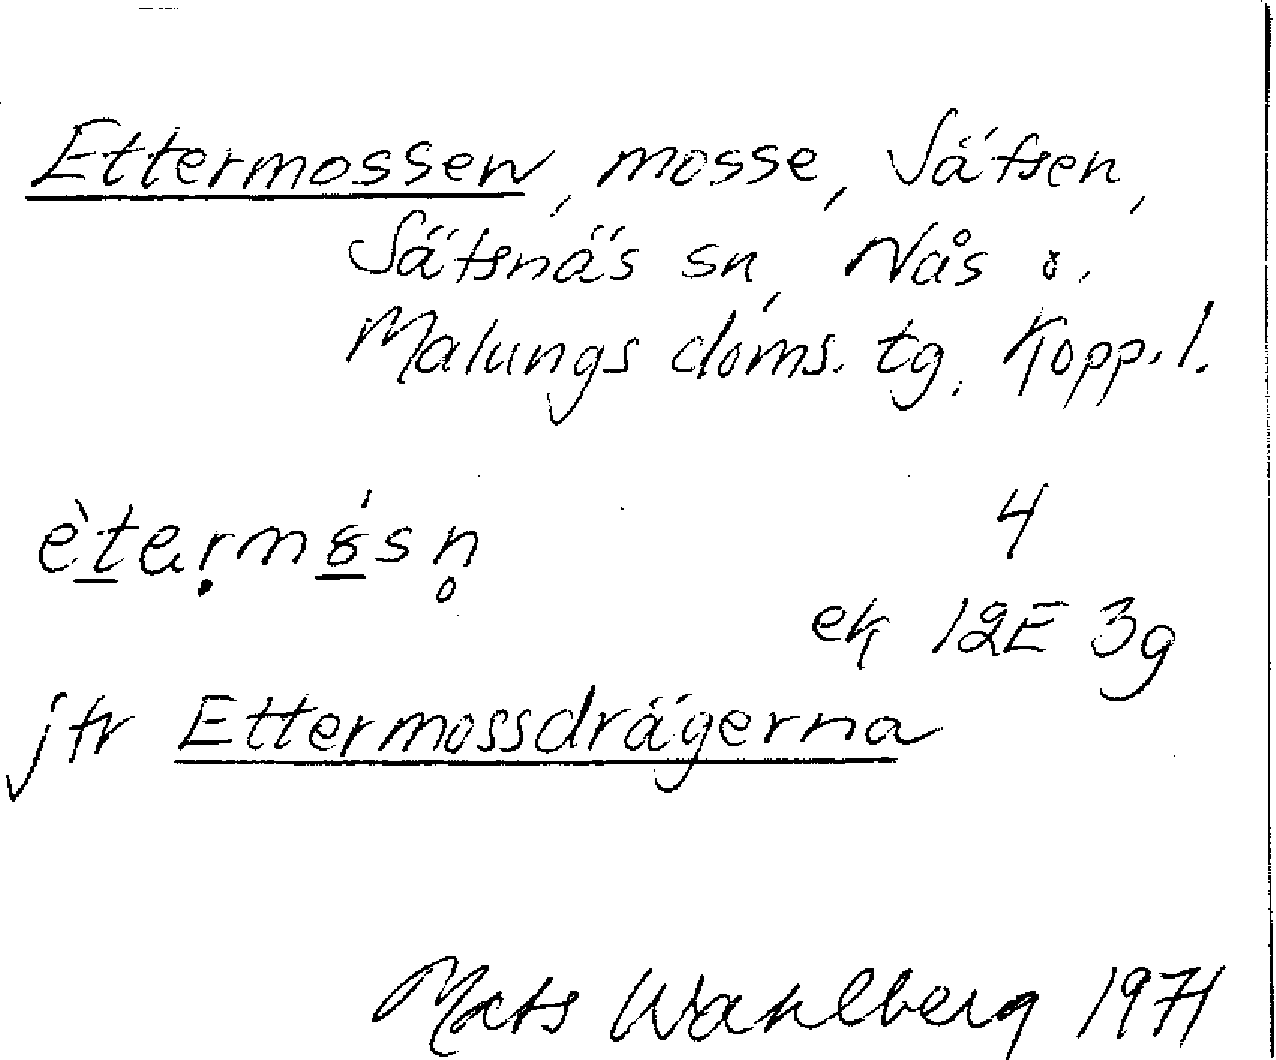 Ettermossen, mosse, Säfsen,
Säfsnäs sn, Nås o.
Malungs doms. tg. Kopp. l.
4
ek 12E 3g
jfr Ettermossdrägerna
Mats Wahlberg 1971